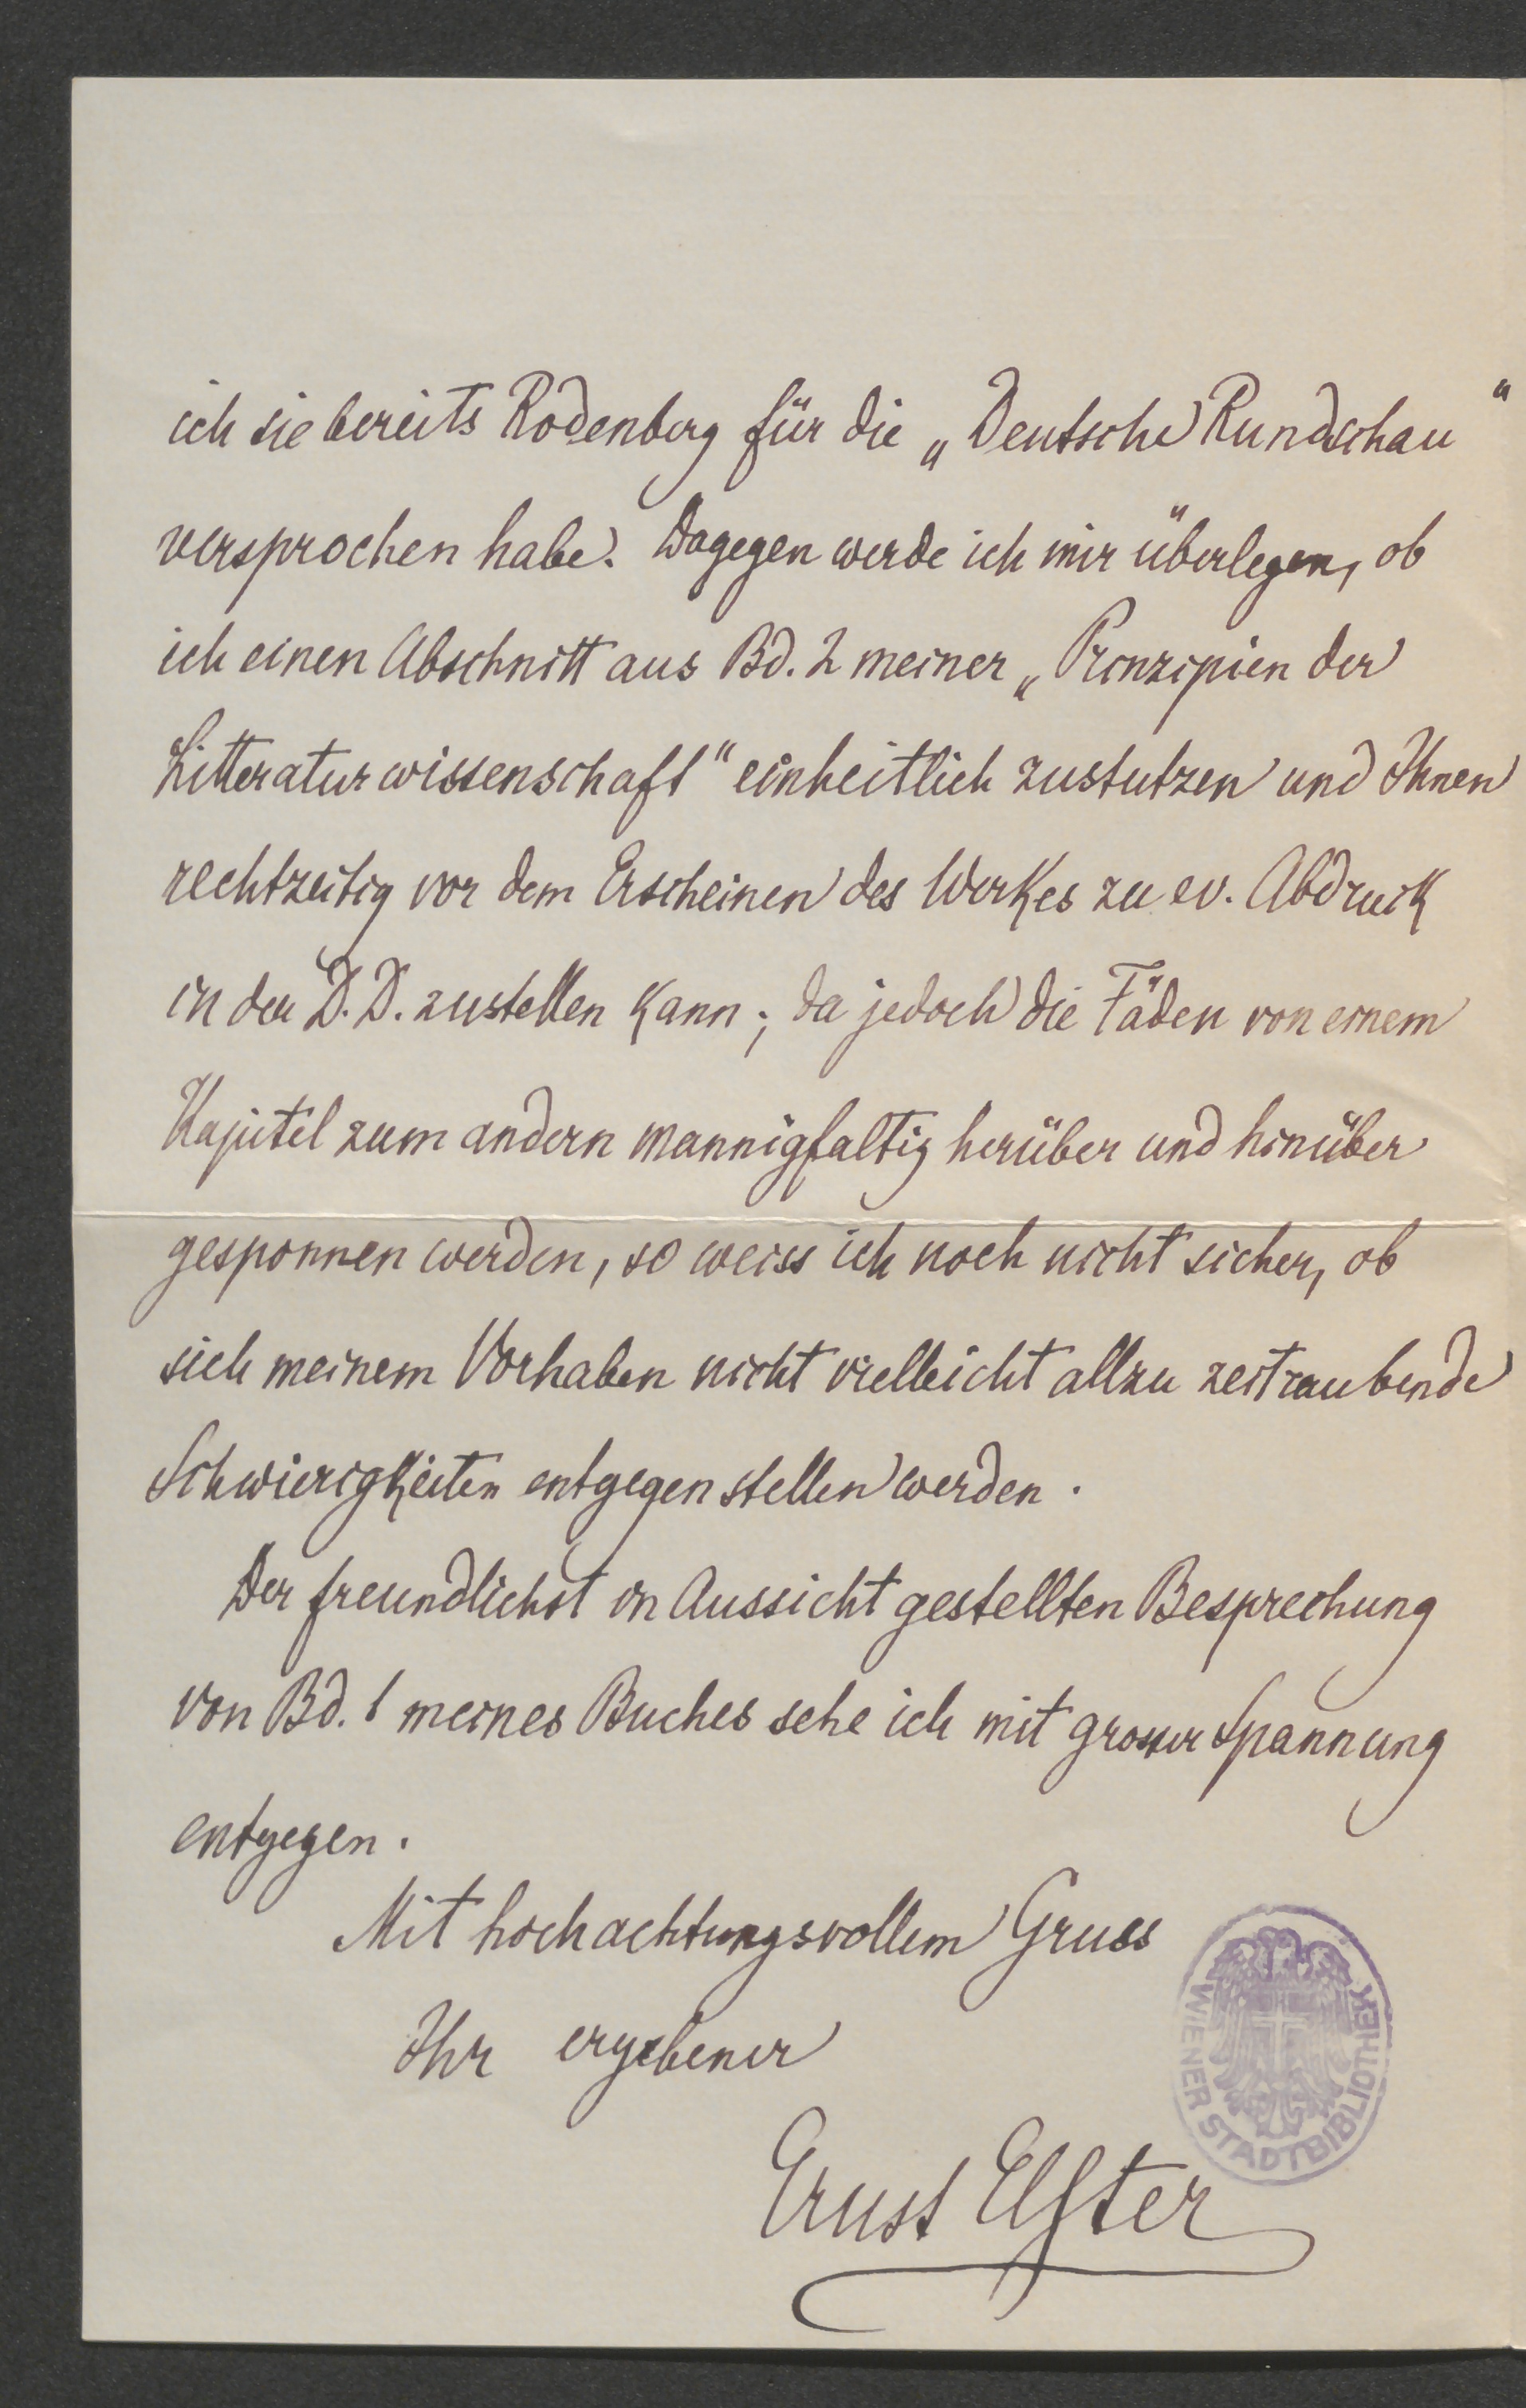 ich sie bereits Rodenberg für die „Deutsche Rundschau“
versprochen habe. Dagegen werde ich mir überlegen, ob
ich einen Abschnitt aus Bd. 2 meiner „Prinzipien der
Litteraturwissenschaft“ einheitlich zustutzen und Ihnen
rechtzeitig vor dem Erscheinen des Werkes zu ev. Abdruck
in der D. D. zustellen kann; da jedoch die Fäden von einem
Kapitel zum andern mannigfaltig herüber und hinüber
gesponnen werden, so weiss ich noch nicht sicher, ob
sich meinem Vorhaben nicht vielleicht allzu zeitraubende
Schwierigkeiten entgegen stellen werden.
Der freundlichst in Aussicht gestellten Besprechung
von Bd. 1 meines Buches sehe ich mit grosser Spannung
entgegen.
Mit hochachtungsvollem Gruss
Ihr ergebener
Ernst Elster
WIENER STADTBIBLIOTHEK